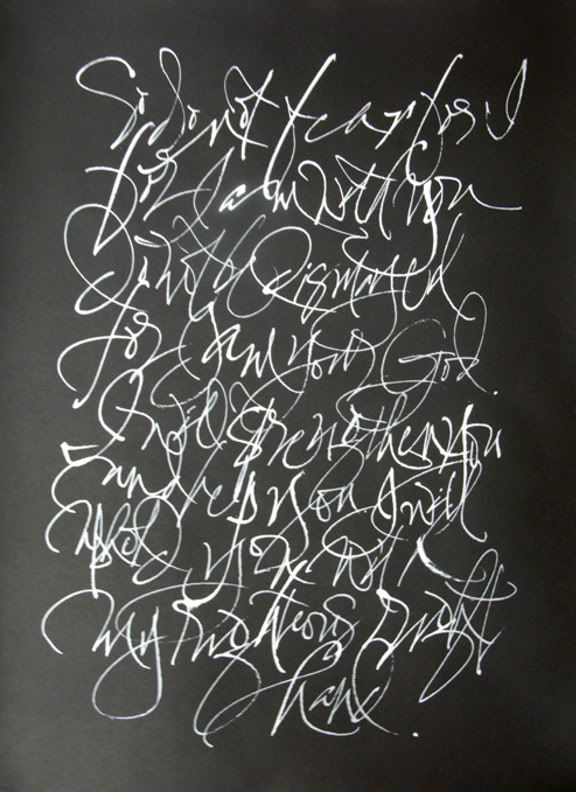 So do not fear for I
for I am with you
Do not be dismayed
for I am your God.
I will strengthen you
and help you I will
uphold you with
my righteous right
hand.